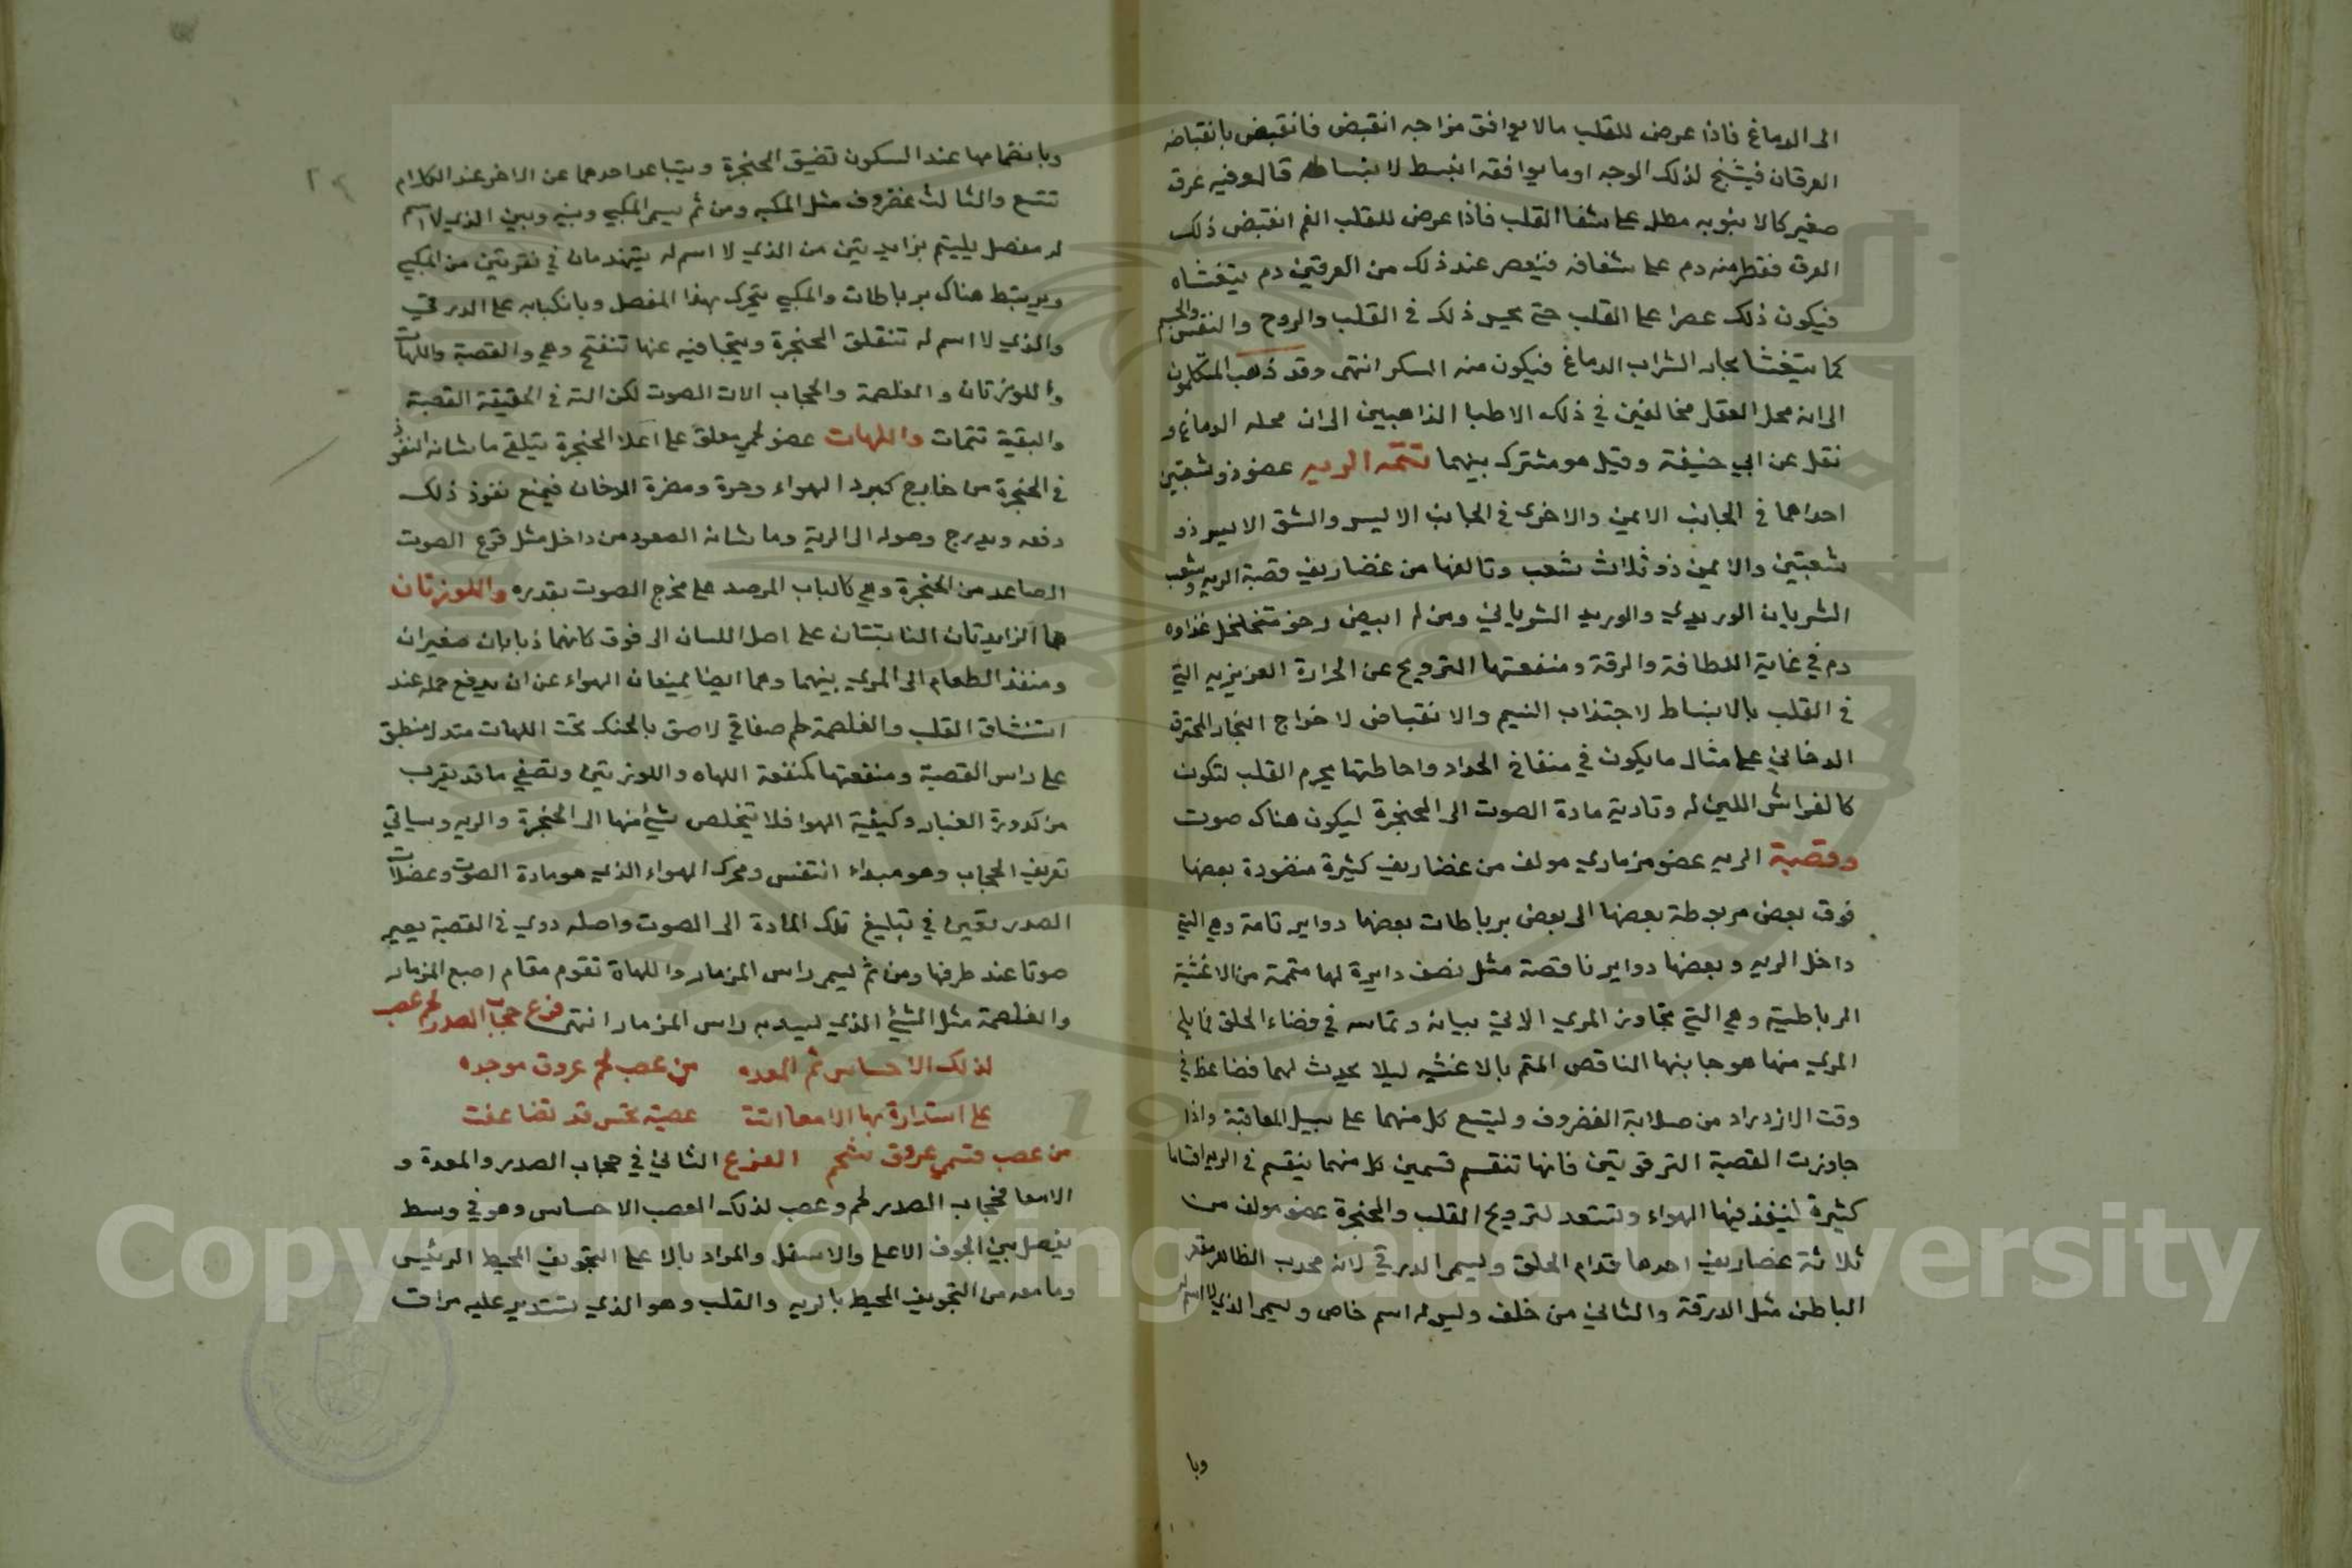 الى الدماغ فاذا عرض للقلب مالا يوافق مزاجه انقبض فانقبض بانقباضه
العرقان فيتشنج لذلك الوجه اوما يوافقه انبسط لانبساطه قالوفيه عرق
صغير كالانبوبه مطل على شغا القلب فاذا عرض للقلب الغم انقبض ذلك
العرق فقطر منه دم على شغافه فينعصر عند ذلك من العرقين دم يتغشاه
فيكون ذلك عصرا على القلب حتى يحس ذلك في القلب والروح والنفس والجسم
كما يتغشا بخار الشراب الدماغ فيكون منه السكر انتهى وقد ذهب المتكلمون
الى ان محل العقل مخالفين في ذلك الاطبا الذاهبين الى ان محله الدماغ و
نقل عن ابي حنيفة وقيل هو مشترك بينهما تتمه الريه عضو ذو شعبتين
احداهما في الجانب الايمن والاخرى في الجانب الايسر والشق الايسر ذو
شعبتين والايمن ذو ثلاث شعب وتالفها من غضاريف قصبة الريه وشعب
الشريان الوريدي والوريد الشرياني ومن لم ابيض رخو متخلخل غذاوه
دم في غاية اللطافة والرقة ومنفعتها الترويح عن الحرارة العزيزيه التي
في القلب بالانبساط لاجتذاب النسيم والانقباض لاخراج البخار المحترق
الدخاني على مثال ما يكون في منفاخ الحداد واحاطتها بجرم القلب لتكون
كالفراش اللين له وتادية مادة الصوت الى الحنجرة ليكون هناك صوت
وقصبة الريه عضو مزماري مولف من غضاريف كثيرة منضودة بعضها
فوق بعض مربوطة بعضها الى بعض برباطات بعضها دواير تامة وهي التي
داخل الريه وبعضها دواير ناقصة مثل نصف دايرة لها متممة من الاغشية
الرباطية وهي التي تجاوز المري الاتي بيانه وتماسه في فضاء الحلق فما يلي
المري منها هو جانبها الناقص المتم بالاغشيه ليلا يحدث لهما فضاغط في
وقت الازدراد من صلابة الغضروف وليتسع كل منهما على سبيل المعاقبة واذا
جاوزت القصبة الترقوتين فانها تنقسم قسمين كل منهما ينقسم في الريه اقساما
كثيرة لينفذ فيها الهواء وتستعد لترويح القلب والحنجرة عضو مولف من
ثلاثة غضاريف احدها قدام الحلق ويسمى الدرقي لانه محدب الظاهر مقعر
الباطن مثل الدرقة والثاني من خلف وليس له اسم خاص ويسمى الذي لا اسم له
وبا
وبانضمامها عند السكون تضيق الحنجرة ويتباعد احدهما عن الاخر عند الكلام
تتسع والثالث غضروف مثل المكبه ومن ثم يسمى المكبي وبينه وبين الذي لا اسم
له مفصل يليتم بزايدتين من الذي لا اسم له يتهندمان في نقرتين من المكبي
ويرتبط هناك برباطات والمكبي يتحرك بهذا المفصل وبانكبابه على الدرقي
والذي لا اسم له تنغلق الحنجرة ويتجافيه عنها تنفتح وهي والقصبة واللهات
واللوزتان والغلصمة والحجاب الات الصوت لكن الته في الحقيقة القصبة
والبقية تتمات واللهات عضو لحمي معلق على اعلا الحنجرة يتلقى ما شانه النفوذ
في الحنجرة من خارج كبرد الهواء وحرة ومضرة الدخان فيمنع نفوذ ذلك
دفعه ويدرج وصوله الى الرية وما شانه الصعود من داخل مثل قرع الصوت
الصاعد من الحنجرة وهي كالباب المرصد على مخرج الصوت بقدره واللوزتان
هما الزايدتان النابتتان على اصل اللسان الى فوق كانهما ذبابان صغيران
ومنفذ الطعام الى المري بينهما وهما ايضا يمنعان الهواء عن ان يدفع جمله عند
استنشاق القلب والغلصمة لحم صفاقي لاصق بالحنك تحت اللهات متدل منطبق
على راس القصبة ومنفعتها كمنفعة اللهاه واللوزتين وتصفي ما قد يقرب
من كدورة الغبار وكيفية الهوا فلا يتخلص شيئ منها الى الحنجرة والريه وسياتي
تعريف الحجاب وهو مبداء التنفس ومحرك الهواء الذي هو مادة الصوت وعضلات
الصدر تعين في تبليغ تلك المادة الى الصوت واصله دوي في القصبة يصير
صوتا عند طرفها ومن ثم يسمى راس المزمار واللهاة تقوم مقام اصبع المزمار
والغلصمة مثل الشيئ الذي يسد به راس المزمار انتهى فرع حجاب الصدر لحم عصب
لذلك الاحساس ثم المعده من عصب لحم عروق موجده
على استدارة بها الامعا اتت عصبة بحس قد تضاعفت
من عصب قسمي عروق شحم الفرع الثاني في حجاب الصدر والمعدة و
الامعا فحجاب الصدر لحم وعصب لذلك العصب الاحساس وهو في وسط
يفصل بين الجوف الاعلى والاسفل والمراد بالاعلى التجويف المحيط الرئيس
وما معه من التجويف المحيط بالريه والقلب وهو الذي تستدير عليه مراق
Copyright © King Saud University
1957